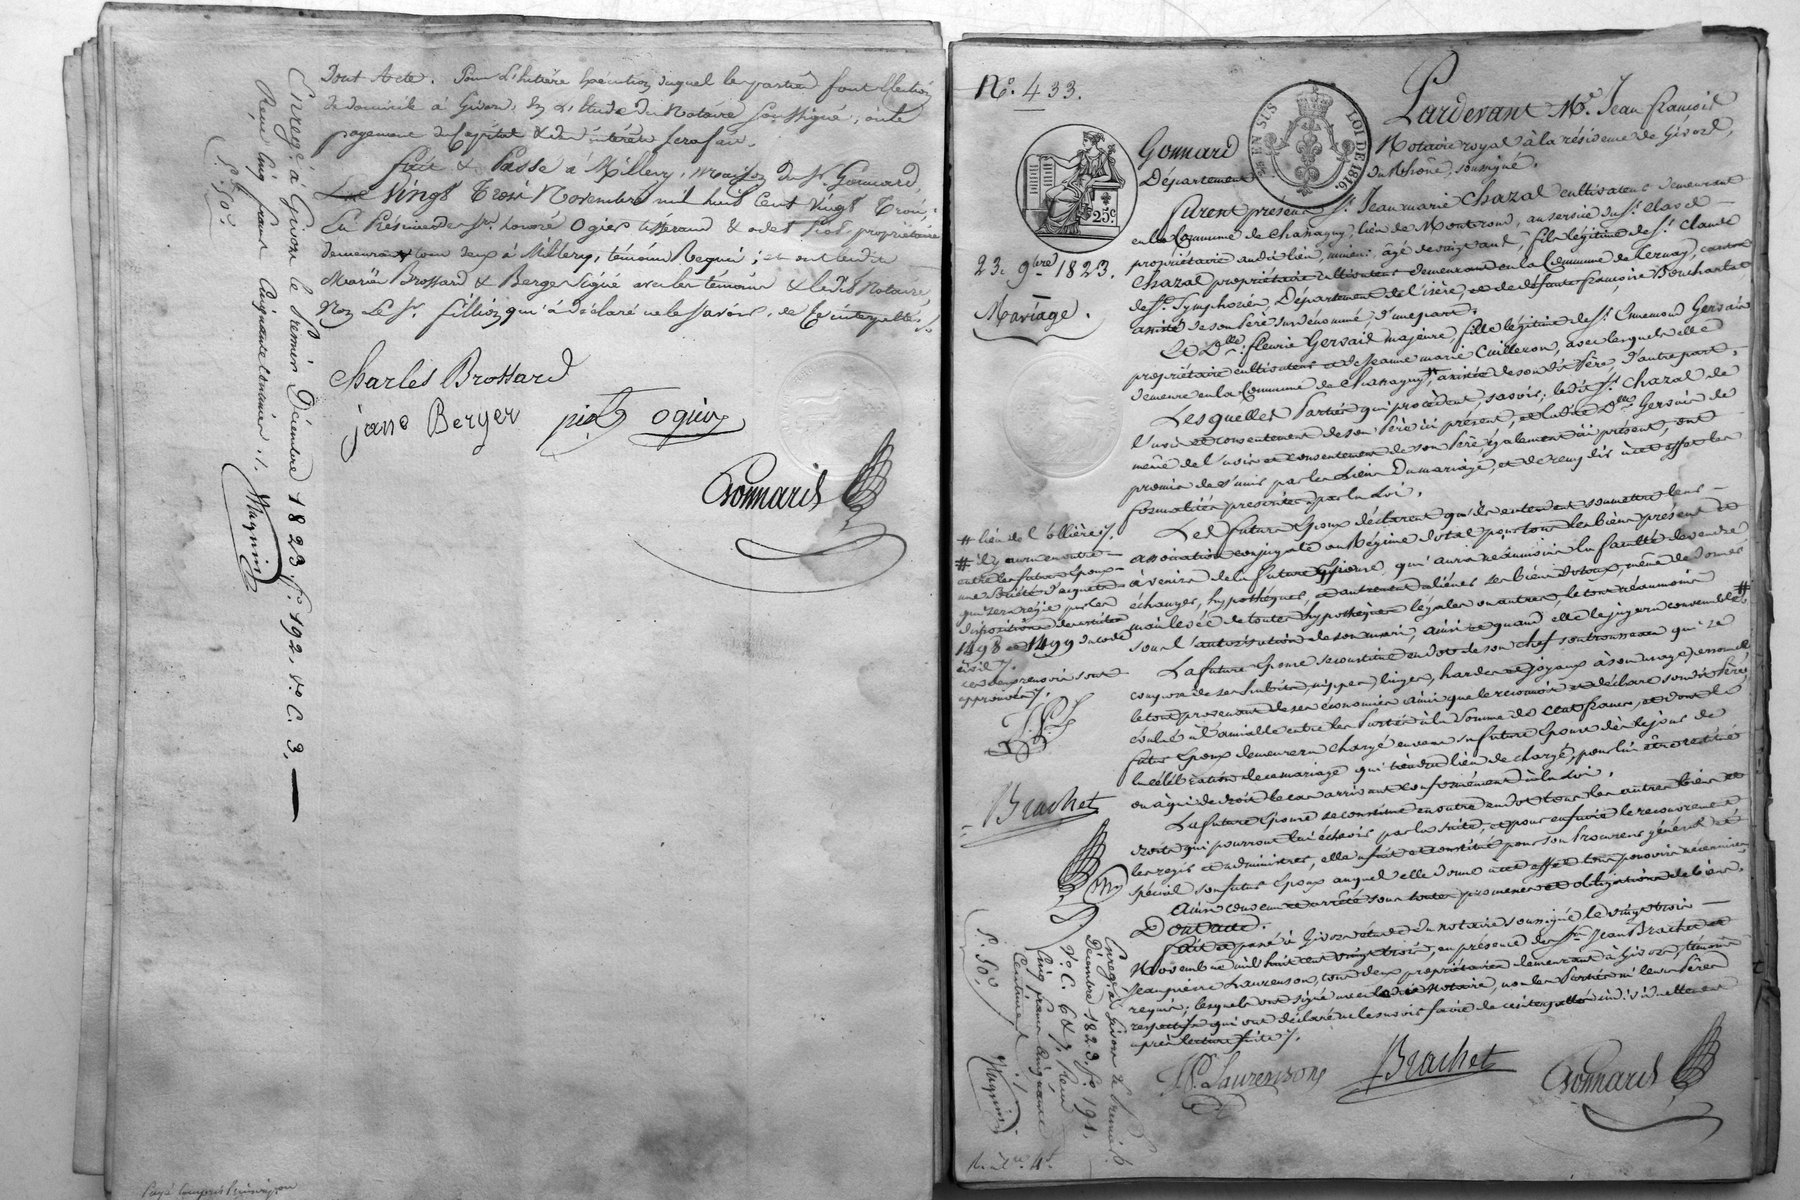 Dont Acte. Pour L'hutière Exécution duquel les parties font Election
de domicile à Givors, En L'Etude du Notaire Soussigné, où le
payement du Capital & des intérêts Sera fait.
fait & Passé à Millery, maison du Sr Gonnard,
Le Vingt Trois Novembre mil huit Cent Vingt Trois
En Présence des Srs honoré Ogier tisserand & odet Piot propriétaire
demeurant tous deux à Millery, témoins Requis; et ont lesdits
Mariés Brossard & Berger Signé avec les témoins & ledit Notaire,
Non Le Sr fillion qui a déclaré ne le Savoir, de Ce interpellé ./.
Charles Brossard
jane Berger piot ogier
Gonnard
Enregé à Givors le Premier Décembre 1823 fo 192, vo C. 3,
Reçu cinq francs Cinquante Centimes ./. Magnin
5. 50c
No. 433.
25c.
EN SUS
LOI DE 1816.
23. 9bre 1823.
Mariage.
Pardevant Me Jean François
Gonnard Notaire royal à la résidence de Givors,
Département du Rhône, soussigné.
furent présens Sr Jean marie Chazal cultivateur demeurant
en la Commune de Chassagny, lieu de Montrond, au service du Sr
propriétaire audit lieu, mineur, âgé de vingt ans, fils légitime de Sr Claude
Chazal propriétaire cultivateur demeurant en la Commune de Ternay, canton
de St Symphorien, Département de l'isère, et de défunte françoise Boucharlat
assisté de son Père susdénommé, d'une part.
Et Dlle fleurie Gersait majeure, fille légitime de Sr Ennemond Gersait
propriétaire cultivateur et de Jeanne marie Cuilleron, avec lesquels elle
demeure en la Commune de Chassagny #, assistée de son dit Père, d'autre part.
Lesquelles Parties qui procèdent, savoir; ledit Sr Chazal de
l'avis et consentement de son Père ici présent, et ladite Dlle Gersait de
même de l'avis et consentement de son Père également ici présent, ont
promis de s'unir par les liens du mariage, et de remplir à cet effet les
formalités prescrites par la Loi.
Les futurs Epoux déclarent qu'ils entendent soumettre leur
association conjugale au Régime dotal pour tous les biens présents et
à venir de la future Epouse, qui aura néanmoins la faculté de vendre
échanger, hypothéquer, et autrement aliéner ses biens dotaux, même de donner
main levée de toutes hypothèques légales ou autres, le tout néanmoins
sous l'autorisation de son mari, ainsi et quand elle le jugera convenable #
La future Epouse se constitue en dot de son chef son trousseau qui se
compose de ses habits, nippes, linges, hardes et joyaux à son usage personnel,
le tout provenant de ses économies ainsi que le reconnoit et déclare son dit Père,
évalué à l'amiable entre les Parties à la Somme de cent francs, et dont le
futur Epoux demeurera chargé envers sa future Epouse dès le jour de
la célébration de ce mariage qui tiendra lieu de charge, pour lui être restitué
ou à qui de droit le cas arrivant conformément à la Loi.
La future Epouse se constitue en outre en dot tous les autres biens et
droits qui pourront lui échoir par la suite, et pour en faire le recouvrement
les régir et administrer, elle a fait et constitué pour son Procureur général et
spécial son futur Epoux auquel elle donne à cet effet tous pouvoirs nécessaires
Ainsi convenu et arrêté sous toutes promesses et obligations de biens.
Dont acte.
fait et passé à Givors étude du notaire soussigné le vingt trois
Novembre mil huit cent vingt trois, en présence de Srs Jean Brachet et
Jean pierre Laurenson, tous deux propriétaires demeurant à Givors, témoins
requis; lesquels ont signé avec ledit Notaire, non les Parties ni leurs Pères
respectifs qui ont déclaré ne le savoir faire de ce interpellés individuellement
après lecture faite ./.
J.P. Laurenson Brachet Gonnard
# lieu de l'ollière ./.
# il y aura en outre
entre les futurs Epoux
une Société d'acquets
qui sera régie par les
dispositions des articles
1498 et 1499 du code
civil ./.
ces deux renvois sont
approuvés ./.
J.P.L
Brachet
Enregé à Givors le Premier
Décembre 1823, fo 191.
Vo C. 6 & 7. Reçu
Cinq francs Cinquante
Centimes ./.
Magnin
5. 50c